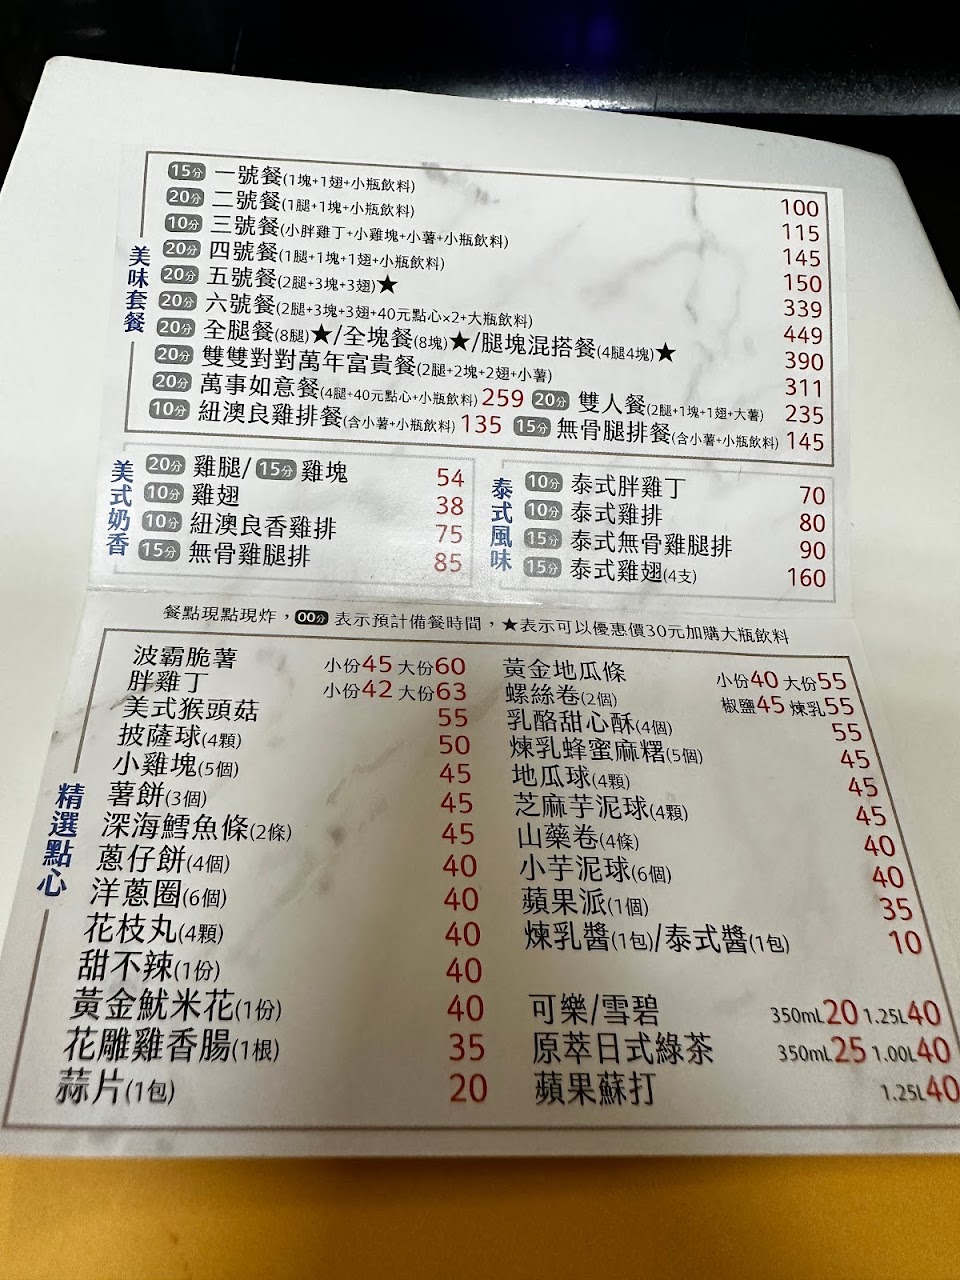 美味套餐
15分 一號餐(1塊+1翅+小瓶飲料) 100
20分 二號餐(1腿+1塊+小瓶飲料) 115
10分 三號餐(小胖雞丁+小雞塊+小薯+小瓶飲料) 145
20分 四號餐(1腿+1塊+1翅+小瓶飲料) 150
20分 五號餐(2腿+3塊+3翅)★ 339
20分 六號餐(2腿+3塊+3翅+40元點心×2+大瓶飲料) 449
20分 全腿餐(8腿)★/全塊餐(8塊)★/腿塊混搭餐(4腿4塊)★ 390
20分 雙雙對對萬年富貴餐(2腿+2塊+2翅+小薯) 311
20分 萬事如意餐(4腿+40元點心+小瓶飲料) 259 20分 雙人餐(2腿+1塊+1翅+大薯) 235
10分 紐澳良雞排餐(含小薯+小瓶飲料) 135 15分 無骨腿排餐(含小薯+小瓶飲料) 145
美式奶香
20分 雞腿/15分 雞塊 54
10分 雞翅 38
10分 紐澳良香雞排 75
15分 無骨雞腿排 85
泰式風味
10分 泰式胖雞丁 70
10分 泰式雞排 80
15分 泰式無骨雞腿排 90
15分 泰式雞翅(4支) 160
餐點現點現炸，00分 表示預計備餐時間，★表示可以優惠價30元加購大瓶飲料
精選點心
波霸脆薯 小份45 大份60
胖雞丁 小份42 大份63
美式猴頭菇 55
披薩球(4顆) 50
小雞塊(5個) 45
薯餅(3個) 45
深海鱈魚條(2條) 45
蔥仔餅(4個) 40
洋蔥圈(6個) 40
花枝丸(4顆) 40
甜不辣(1份) 40
黃金魷米花(1份) 40
花雕雞香腸(1根) 35
蒜片(1包) 20
黃金地瓜條 小份40 大份55
螺絲卷(2個) 椒鹽45 煉乳55
乳酪甜心酥(4個) 55
煉乳蜂蜜麻糬(5個) 45
地瓜球(4顆) 45
芝麻芋泥球(4顆) 45
山藥卷(4條) 40
小芋泥球(6個) 40
蘋果派(1個) 35
煉乳醬(1包)/泰式醬(1包) 10
可樂/雪碧 350mL20 1.25L40
原萃日式綠茶 350mL25 1.00L40
蘋果蘇打 1.25L40